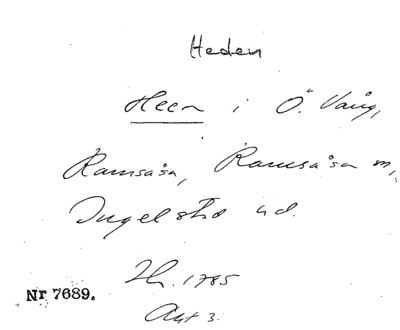 Heden
Heen i Ö. Vång,
Ramsåsa, Ramsåsa sn,
Ingelstad hd.
Nr 7689.
1785
Akt 3.